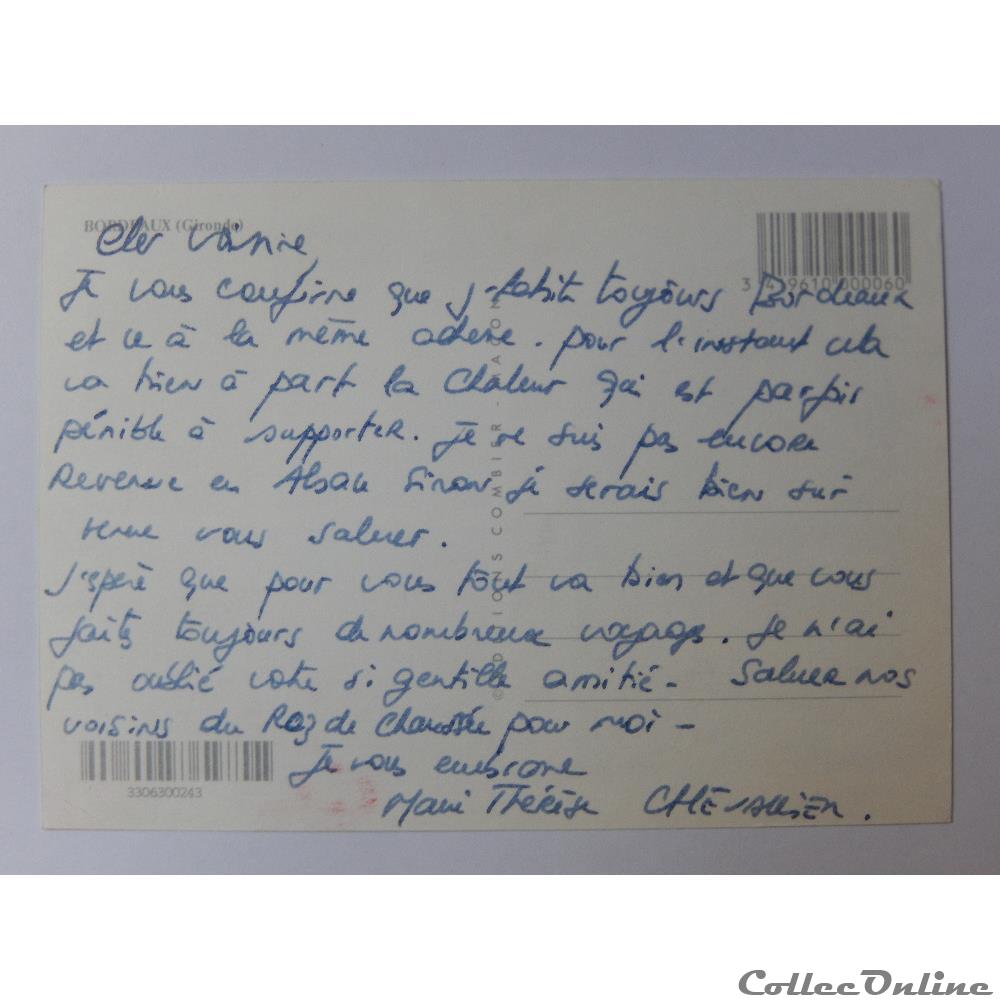 BORDEAUX (Gironde)
Cher Voisine,
3 9610 000060
Je vous confirme que j'habite toujours Bordeaux
et ce à la même adresse. pour l'instant cela
va bien à part la chaleur qui est parfois
pénible à supporter. Je ne suis pas encore
Revenue en Alsace sinon je serais bien sûr
venue vous saluer.
J'espère que pour vous tout va bien et que vous
faites toujours de nombreux voyages. Je n'ai
pas oublié votre si gentille amitié - Saluer nos
voisins du Raz de Chaussée pour moi -
Je vous embrasse
3306300243
Marie Thérèse CHEVALLIER.
ÉDITIONS COMBIER - MACON
CollecOnline